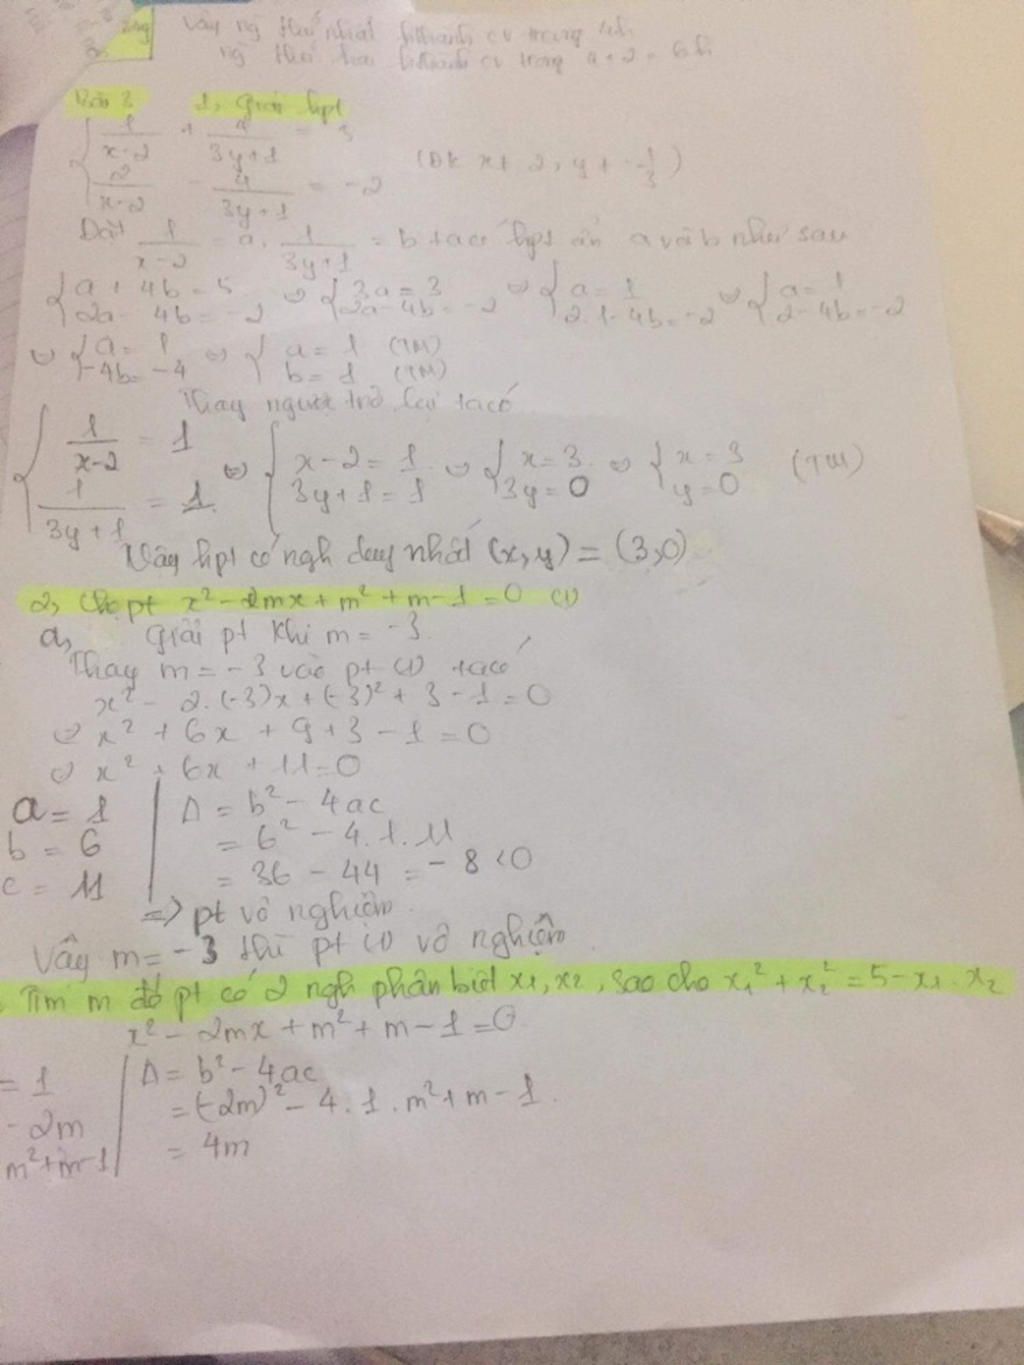 Vậy ng thứ nhất hthành cv trong 4h
ng thứ hai hthành cv trong a+2 = 6h
Bài 3 1, Giải hpt
{ 1/(x-2) + 4/(3y+1) = 5
{ 2/(x-2) - 4/(3y+1) = -2 (ĐK x ≠ 2, y ≠ -1/3)
Đặt 1/(x-2) = a, 1/(3y+1) = b ta có hpt ẩn a và b như sau
{ a + 4b = 5 ⇔ { 3a = 3 ⇔ { a = 1 ⇔ { a = 1
{ 2a - 4b = -2 { 2a - 4b = -2 { 2.1 - 4b = -2 { 2 - 4b = -2
⇔ { a = 1 ⇔ { a = 1 (TM)
{ -4b = -4 { b = 1 (TM)
Thay ngược trở lại ta có
{ 1/(x-2) = 1 ⇔ { x - 2 = 1 ⇔ { x = 3 ⇔ { x = 3 (TM)
{ 1/(3y+1) = 1 { 3y + 1 = 1 { 3y = 0 { y = 0
Vậy hpt có ngh duy nhất (x,y) = (3,0)
2, Cho pt x² - 2mx + m² + m - 1 = 0 (1)
a, Giải pt khi m = -3
Thay m = -3 vào pt (1) ta có
x² - 2.(-3)x + (-3)² + 3 - 1 = 0
⇔ x² + 6x + 9 + 3 - 1 = 0
⇔ x² + 6x + 11 = 0
a = 1 | Δ = b² - 4ac
b = 6 | = 6² - 4.1.11
c = 11 | = 36 - 44 = -8 < 0
=> pt vô nghiệm
Vậy m = -3 thì pt (1) vô nghiệm
Tìm m để pt có 2 ngh phân biệt x₁, x₂, sao cho x₁² + x₂² = 5 - x₁.x₂
x² - 2mx + m² + m - 1 = 0
= 1 | Δ = b² - 4ac
-2m | = (-2m)² - 4.1.m² + m - 1
m² + m - 1 | = 4m